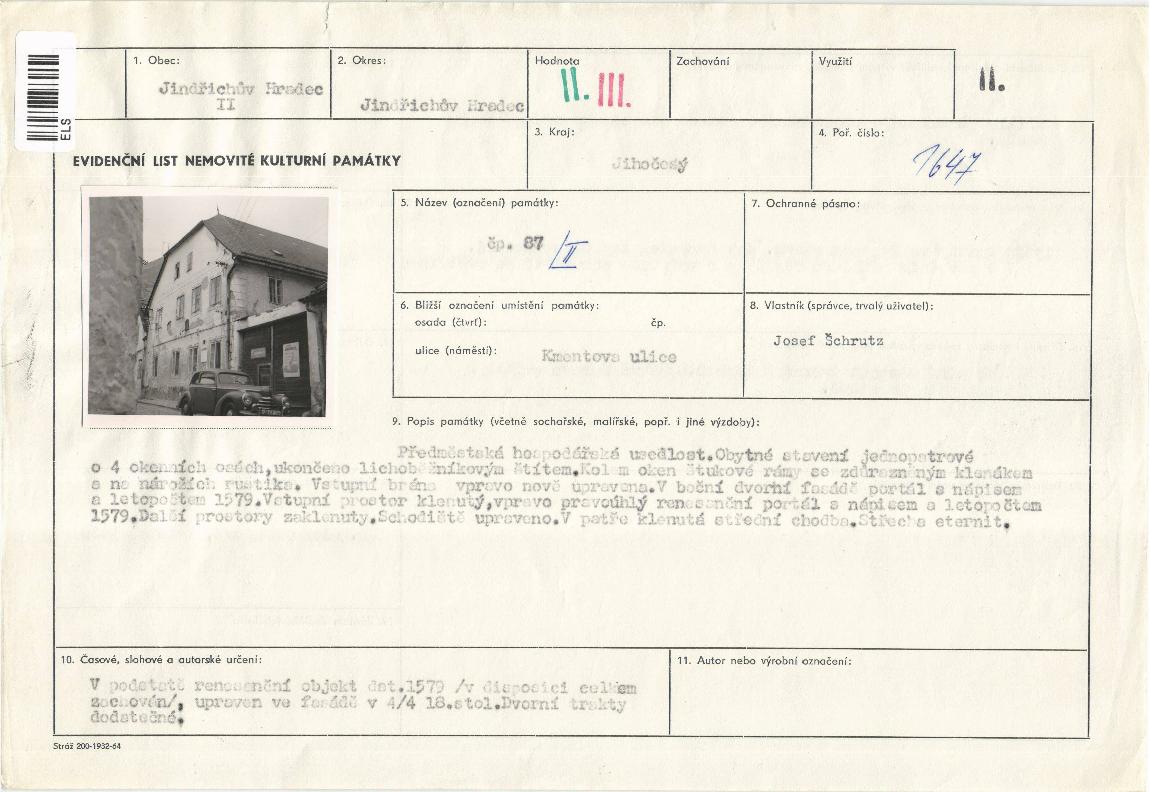 ELS
1. Obec:
Jindřichův Hradec
II
2. Okres:
Jindřichův Hradec
Hodnota
II. III.
Zachování
Využití
II.
EVIDENČNÍ LIST NEMOVITÉ KULTURNÍ PAMÁTKY
3. Kraj:
Jihočeský
4. Poř. číslo:
1647
5. Název (označení) památky:
čp. 87/II
7. Ochranné pásmo:
6. Bližší označení umístění památky:
osada (čtvrť): čp.
ulice (náměstí): Kmentova ulice
8. Vlastník (správce, trvalý uživatel):
Josef Schrutz
9. Popis památky (včetně sochařské, malířské, popř. i jiné výzdoby):
Předměstská hospodářská usedlost.Obytné stavení jednopatrové
o 4 okenních osách,ukončeno lichoběžníkovým štítem.Kolem oken štukové rámy se zdůrazněným klenákem
a na nárožích rustika. Vstupní brána vpravo nově upravena.V boční dvorní fasádě portál s nápisem
a letopočtem 1579.Vstupní prostor klenutý,vpravo pravoúhlý renesanční portál s nápisem a letopočtem
1579.Další prostory zaklenuty.Schodiště upraveno.V patře klenutá střední chodba.Střecha eternit.
10. Časové, slohové a autorské určení:
V podstatě renesanční objekt dat.1579 /v disposici celkem
zachován/, upraven ve fasádě v 4/4 18.stol.Dvorní trakty
dodatečné.
11. Autor nebo výrobní označení:
Stráž 200-1932-64